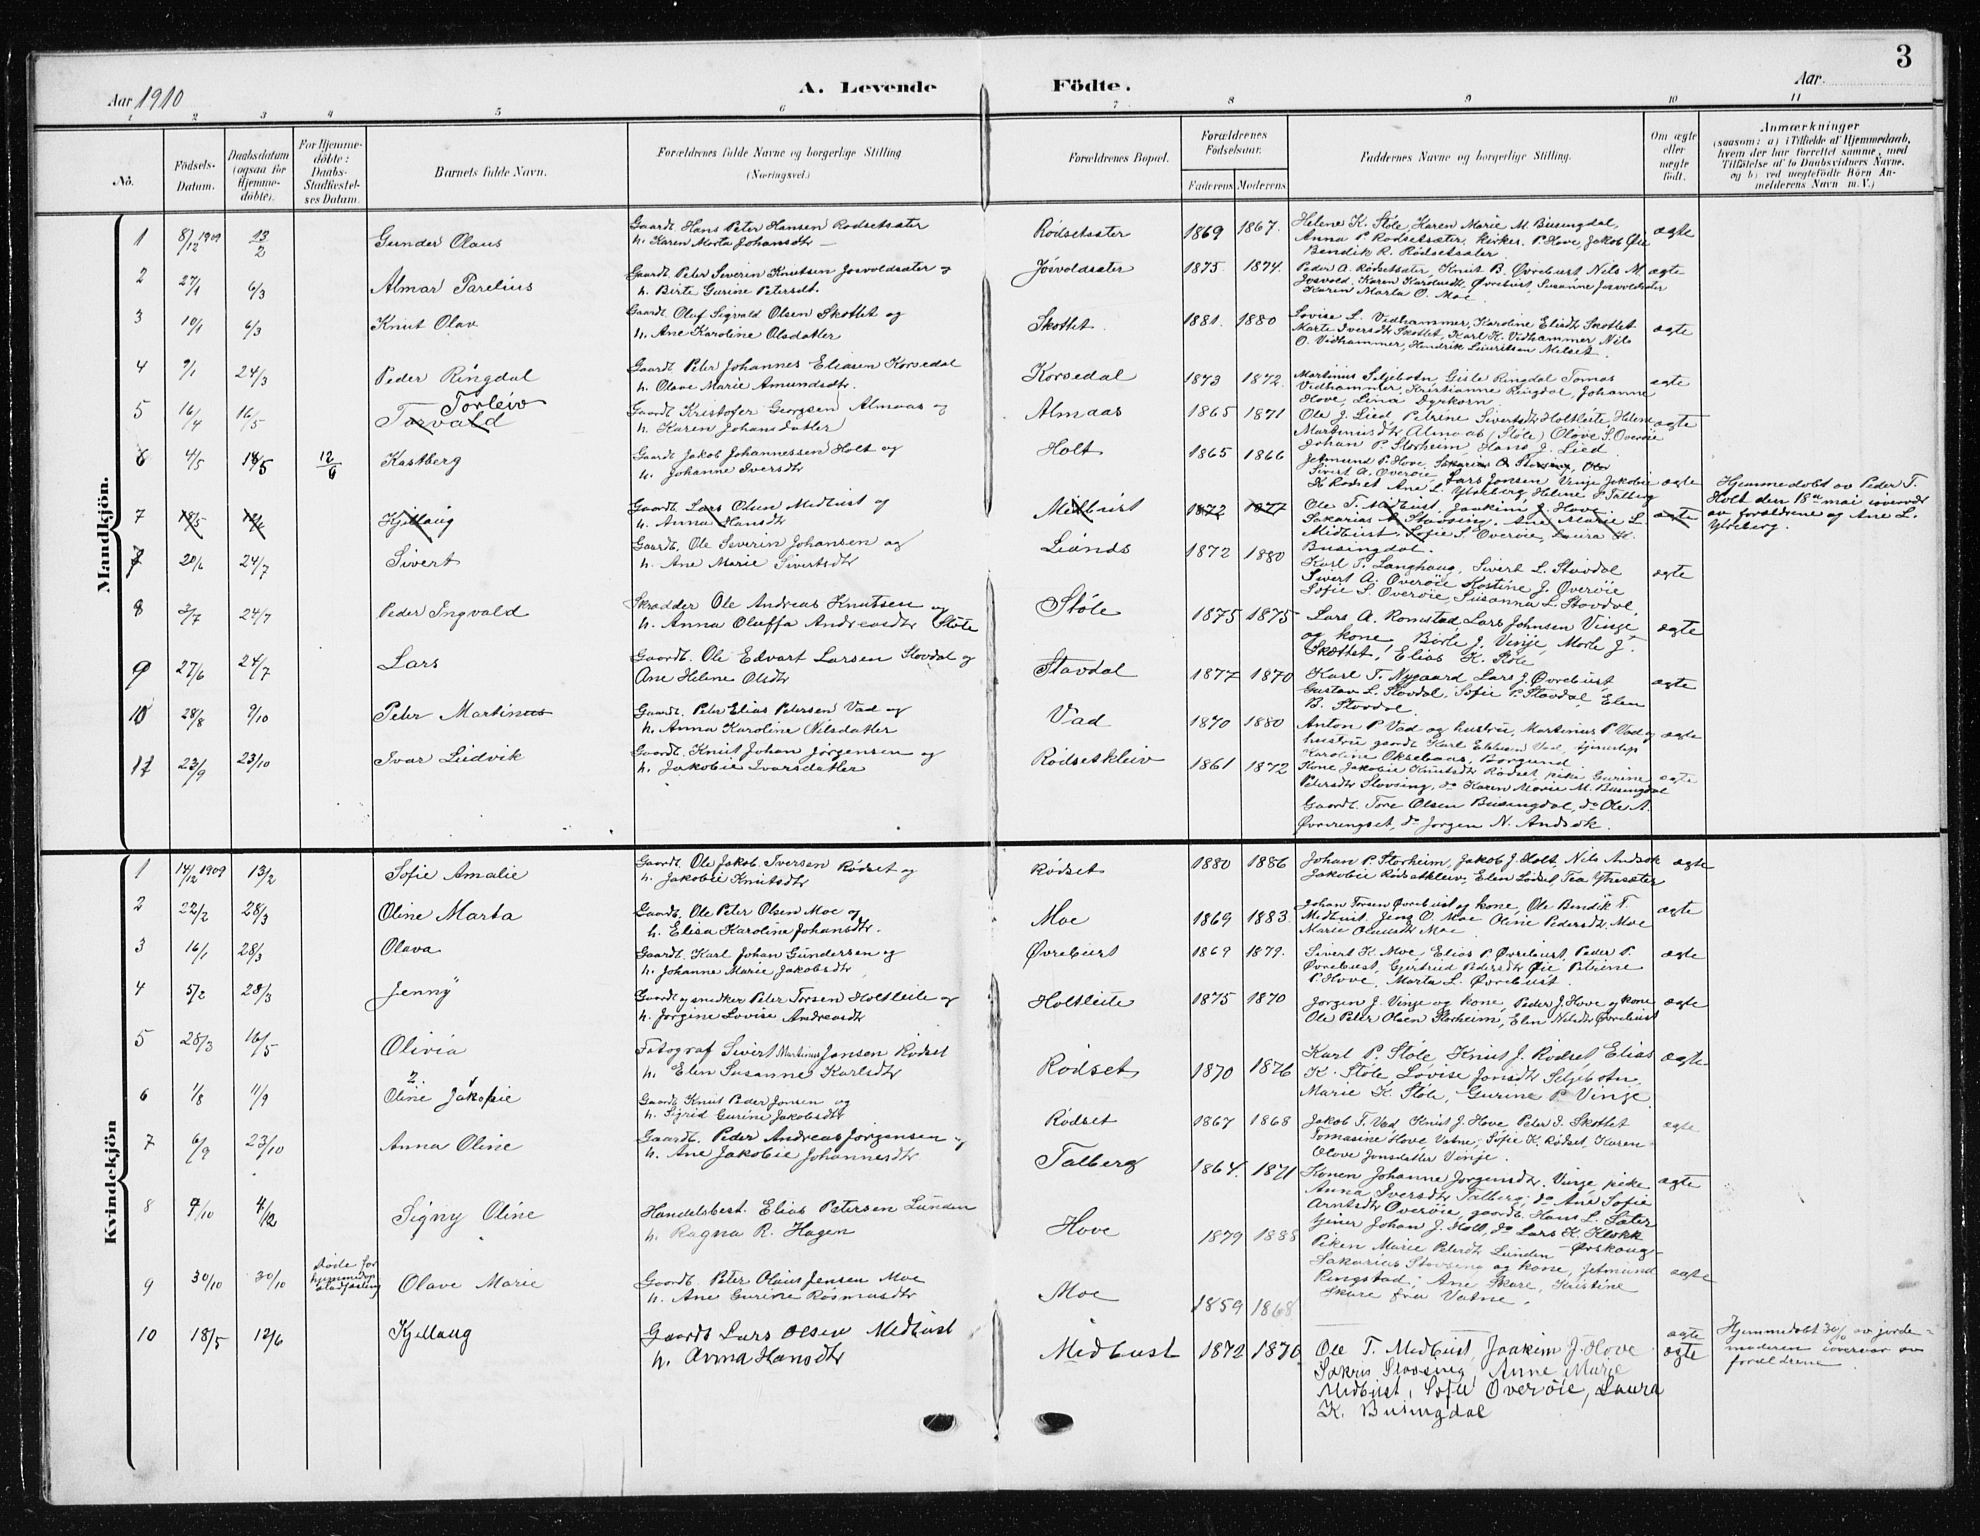 3
Aar 1910
A. Levende
Födte.
Aar
1 2 3 4 5 6 7 8 9 10 11
No.
Födsels-Datum.
Daabsdatum (ogsaa for Hjemmedöbte).
For Hjemmedöbte: Daabs-Stadfæstelses Datum.
Barnets fulde Navn.
Forældrenes fulde Navne og borgerlige Stilling (Næringsvei.)
Forældrenes Bopæl.
Forældrenes Födselsaar.
Faderens Moderens
Faddernes Navne og borgerlige Stilling.
Om ægte eller uægte födt.
Anmærkninger
(saasom: a) i Tilfælde af Hjemmedaab, hvem der har forrettet samme, med Tilföielse af to Daabsvidners Navne. og b) ved uægtefödte Börn Anmelderens Navn m. V.)
Mandkjön.
1 8/12 1909 13/2 Gunder Olaus Gaardt. Hans Peter Hansen Rødsetsæter Rødsetsæter 1869 1867 Helene K. Støle, Karen Marie M. Busingdal, ægte
h. Karen Marta Johansdtr Anna P. Rødsetsæter, Kirkes. P. Hove, Jakob Øie
Bendik R. Rødsetsæter
2 27/1 6/3 Almar Parelius Gaardt. Peter Severin Knutsen Jøsvoldsæter og Jøsvoldsæter 1875 1874. Peder A. Rødsetsæter, Knut B. Øvrebust Nils M. ægte
h. Birte Gurine Petersdt. Jøsvold, Karen Karolusdtr Øvrebust, Susanne Jøsvoldsæter
Karen Marta O. Moe
3 10/1 6/3 Knut Olav Gaardt. Oluf Sigvald Olsen Skottet og Skottet. 1881. 1880 Lovise L. Vidhammer, Karoline Eliasdtr Skottet ægte
h. Ane Karoline Olsdatter Marte Iversdtr Skottet, Karl K. Vidhammer Nils
O. Vidhammer, Hendrik Lauritsen Melset.
4 9/1 24/3 Peder Ringdal Gaardt. Peter Johannes Eliasen Korsedal Korsedal 1873 1872. Martinus Seljebotn, Gisle Ringdal Tomas ægte
h. Olave Marie Amundsdtr. Vidhammer, Kristianne Ringdal, Johanne
Hove, Lina Dyrkorn
5 16/4 16/5 Torvald Torleiv Gaardt. Kristofer Georgsen Almaas og Almaas 1865 1871 Ole J. Lied Petrine Sivertsdtr Holtleite, Helene ægte
h. Karen Johansdatter Martinusdtr Almaas (Støle) Olave S. Overøie
Johan P. Storheim, Hans J. Lied.
6 4/5 18/5 12/6 Kastberg Gaardt. Jakob Johannessen Holt og Holt 1865 1866 Jetmund P. Hove, ægte
h. Johanne Iversdtr Sivert A. Overøie, Lars Jonsen Vinje Jakobie
K. Rødset Ane L. Ytreberg, Helene P. Talberg
Hjemmedøbt av Peder T. Holt den 18de mai i overvær av forældrene og Ane L. Ytreberg.
7 18/5 12/6 Kjellaug Gaardt. Lars Olsen Midbust og Midbust 1872 1877 Ole T. Midbust, Joakim J. Hove. ægte
h. Anna Hansdtr Sakarias Stavseng, Ane Marie L.
Midbust, Sofie S. Overøie, Laura K.
Busingdal.
7 20/6 24/7 Sivert Gaardt. Ole Severin Johansen og 1872 1880 Karl T. Langhaug, Sivert L. Stavdal ægte
h. Ane Marie Sivertsdtr Sivert A. Overøie Kostine J. Overøie
Sofie S. Overøie, Susanna L. Stavdal,
8 3/7 24/7 Peder Ingvald Skrædder Ole Andreas Knutsen og Støle 1875 1875 Lars A. Romstad, Lars Johnsen Vinje ægte
h. Anna Oluffa Andreasdtr Støle og kone, Birte J. Vinje, Marte J.
Skottet, Elias K. Støle
9 27/6 24/7 Lars Gaardt. Ole Edvart Larsen Stavdal og Stavdal 1877 1870 Karl T. Nygaard Lars J. Øvrebust ægte
Ane Helene Olsdtr Gustav L. Stavdal, Sofie P. Stavdal, Elen
B. Stavdal.
10 28/8 9/10 Peter Martinus Gaardt. Peter Elias Petersen Vad og Vad 1870 1880 Anton P. Vad og hustru, Martinus P. Vad og ægte
h. Anna Karoline Nilsdatter hustru, gaardt. Karl Vad, tjenestep.
Karoline Oksebaas, Borgund
11 23/9 23/10 Ivar Ludvik Gaardt. Knut Johan Jørgensen og Rødsetkleiv 1861 1872 Kone Jakobie Knutsdtr Rødset, pike Gurine ægte
h. Jakobie Ivarsdatter Petersdtr Stavseng, do Karen Marie M. Busingdal
Gaardt. Tore Olsen Busingdal, do Ole A.
do Jørgen N. Andsøk.
Kvindekjön
1 14/12 1909 13/2 Sofie Amalie Gaardt. Ole Jakob Iversen Rødset og Rødset 1880 1886 Johan P. Storheim, Jakob J. Holt Nils Andsøk ægte
h. Jakobie Knutsdtr Jakobie Rødsetkleiv, Elen Rødset Tea Ytresæter
2 22/2 28/3 Oline Marta Gaardt. Ole Peter Olsen Moe og Moe 1869 1883 Johan Øvrebust og kone, Ole Bendik T. ægte
h. Elisa Karoline Johansdtr. Midbust, Jens O. Moe Oline Pedersdtr Moe
Marie Moe
3 16/1 28/3 Olava Gaardt. Karl Johan Gundersen og Øvrebust 1869 1879. Sivert K. Moe, Elias P. Øvrebust, Peder P. ægte
h. Johanne Marie Jakobsdtr Øvrebust, Gjertrud Pedersdtr Øie Petrine
P. Hove, Marta L. Øvrebust.
4 5/2 28/3 Jenny Gaardt. og snedker Peter Torsen Holtleite og Holtleite 1875 1870 Jørgen J. Vinje og kone, Peder J. Hove og kone ægte
h. Jørgine Lovise Andreasdtr Ole Peter Olsen Storheim, Elen Nilsdtr Øvrebust
5 28/3 16/5 Olivia Fotograf Sivert Martinus Jonsen Rødset Rødset 1870 1876 Karl P. Støle, Knut J. Rødset Elias ægte
h. Elen Susanne Karlsdtr K. Støle Lovise Jonsdtr Seljebotn,
Marie K. Støle, Gurine P. Vinje
6 1/8 11/9 Oline Jakobie Gaardt. Knut Peder Jonsen og Rødset 1867 1868 Jakob T. Vad, Knut J. Hove Peter I. Skottet ægte
h. Sigrid Gurine Jakobsdtr Tomasine Hove Vatne, Sofie K. Rødset, Karen
Olave Jonsdatter Vinje.
7 6/9 23/10 Anna Oline Gaardt. Peder Andreas Jørgensen og Talberg 1864. 1871 Konen Johanne Jørgensdtr. Vinje pike ægte
h. Ane Jakobie Johannesdtr Anna Iversdtr Talberg, do Ane Sofie
Arntsdtr Overøie, gaardt. Hans L. Sæter
tjener Johan J. Holt, do Lars K. Klokk
8 7/10 4/12 Signy Oline Handelsbest. Elias Petersen Lunden Hove 1879 1888 Piken Marie Petersdt Lunden Ørskoug
h. Ragna R. Hagen Sakarias Stavseng og kone, Jetmund ægte
Ringstad, Ane Skare, Kristine
Skare fra Vatne.
9 30/10 30/10 Døde før hjemmedøp stadfæsting Olave Marie Gaardt. Peter Olaus Jensen Moe Moe 1859 1868 ægte
h. Ane Gurine Rasmusdtr
Hjemmedøbt 30/10 av jordemoderen i overvær av forældrene
10 18/5 12/6 Kjellaug Gaardt Lars Olsen Midbust Midbust 1872 1870 Ole T. Midbust, Joakim J. Hove ægte
h. Anna Hansdtr Sakris Stavseng, Anne Marie
Midbust, Sofie Overøie, Laura
K. Busingdal